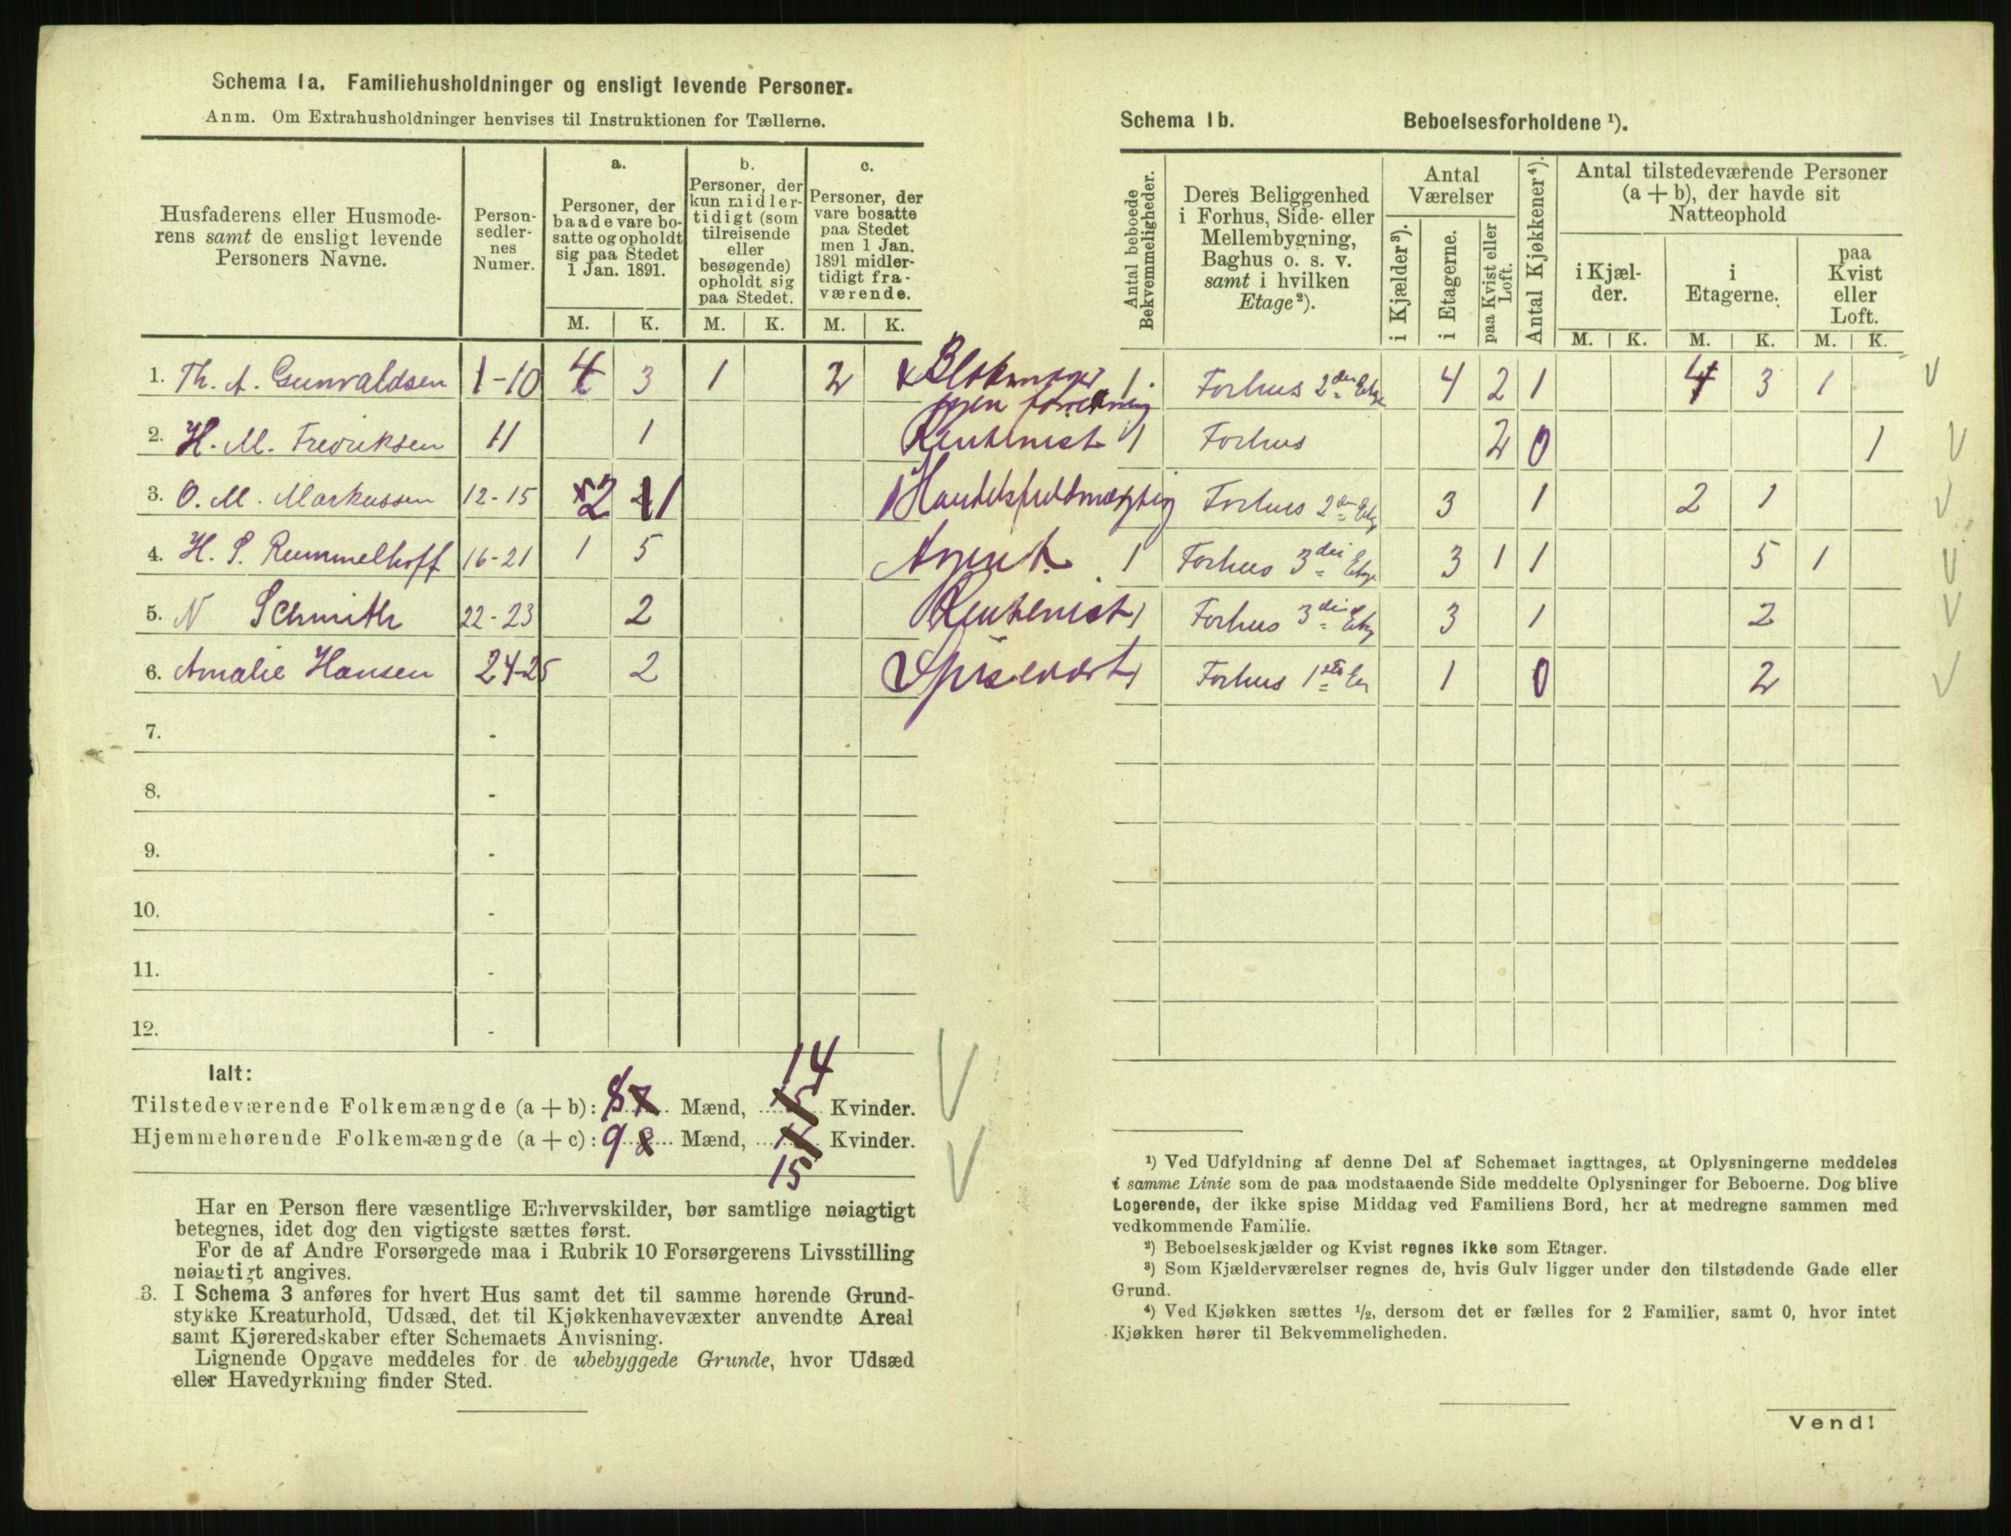 Schema 1a. Familiehusholdninger og ensligt levende Personer.
Anm. Om Extrahusholdninger henvises til Instruktionen for Tællerne.
Husfaderens eller Husmode-
rens samt de ensligt levende
Personers Navne.
Person-
sedler-
nes
Numer.
a.
Personer, der
baade vare bo-
satte og opholdt
sig paa Stedet
1 Jan. 1891.
b.
Personer, der
kun midler-
tidigt (som
tilreisende
eller
besøgende)
opholdt sig
paa Stedet.
c.
Personer, der
vare bosatte
paa Stedet
men 1 Jan.
1891 midler-
tidigt fra-
værende.
M. K. M. K. M. K.
1. Th. A. Gunvaldsen 1-10 4 3 1 2
2. H. M. Fredriksen 11 1
3. O. M. Markussen 12-15 2 1
4. H. S. Rummelhoff 16-21 1 5 Agent.
5. N Schmith 22-23 2 Rentenist
6. Amalie Hansen 24-25 2 Spisevært
7. -
8. -
9. -
10. -
11. -
12. -
Ialt:
14
Tilstedeværende Folkemængde (a + b): 8 7 Mænd, 15 Kvinder.
Hjemmehørende Folkemængde (a + c): 9 8 Mænd, Kvinder.
15
Har en Person flere væsentlige Erhvervskilder, bør samtlige nøiagtigt
betegnes, idet dog den vigtigste sættes først.
For de af Andre Forsørgede maa i Rubrik 10 Forsørgerens Livsstilling
nøiagtigt angives.
3. I Schema 3 anføres for hvert Hus samt det til samme hørende Grund-
stykke Kreaturhold, Udsæd, det til Kjøkkenhavevæxter anvendte Areal
samt Kjøreredskaber efter Schemaets Anvisning.
Lignende Opgave meddeles for de ubebyggede Grunde, hvor Udsæd
eller Havedyrkning finder Sted.
Schema 1b. Beboelsesforholdene ¹).
Antal beboede
Bekvemmeligheder.
Deres Beliggenhed
i Forhus, Side- eller
Mellembygning,
Baghus o. s. v.
samt i hvilken
Etage ²).
Antal
Værelser
i Kjælder ³).
i Etagerne.
paa Kvist eller
Loft.
Antal Kjøkkener ⁴).
Antal tilstedeværende Personer
(a + b), der havde sit
Natteophold
i Kjæl-
der.
i
Etagerne.
paa
Kvist
eller
Loft.
M. K. M. K. M. K.
1 Forhus 2den Etge 4 2 1 4 3 1
Rentenist 1 Forhus 2 0 1
Handelsfuldmægtig Forhus 2den Etg 3 1 2 1
1 Forhus 3die Etge 3 1 1 5 1
1 Forhus 3die Etg 3 1 2
1 Forhus 1ste Et 1 0 2
¹) Ved Udfyldning af denne Del af Schemaet iagttages, at Oplysningerne meddeles
i samme Linie som de paa modstaaende Side meddelte Oplysninger for Beboerne. Dog blive
Logerende, der ikke spise Middag ved Familiens Bord, her at medregne sammen med
vedkommende Familie.
²) Beboelseskjælder og Kvist regnes ikke som Etager.
³) Som Kjælderværelser regnes de, hvis Gulv ligger under den tilstødende Gade eller
Grund.
⁴) Ved Kjøkken sættes ½, dersom det er fælles for 2 Familier, samt 0, hvor intet
Kjøkken hører til Bekvemmeligheden.
Vend!